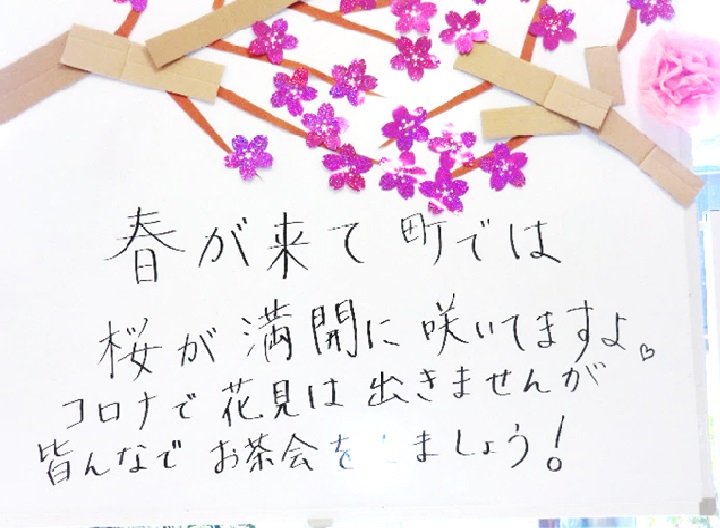 春が来て町では
桜が満開に咲いてますよ。
コロナで花見は出きませんが
皆んなでお茶会をしましょう!